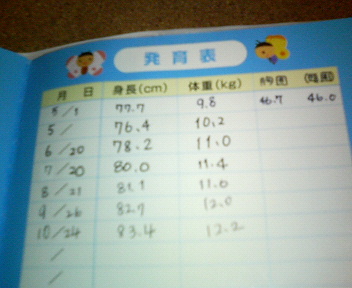 発育表
月 日 身長(cm) 体重(kg) 胸囲 (頭囲)
5/1 77.7 9.8 46.7 46.0
5/ 76.4 10.2
6/20 78.2 11.0
7/20 80.0 11.4
8/21 81.1 11.6
9/26 82.7 12.0
10/24 83.4 12.2
/
/